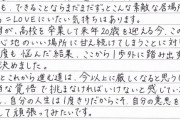 も、できることならまだまだずっとこんな素敵な居場所
＝LOVEにいたい気持ちはあります。
すが、高校を卒業して来年20歳を迎える今、この
心地のいい場所に甘え続けてしまうことに対
度も悩んだ結果、ここから1歩外に踏み出す
決めました。
とこれから進む道は、今以上に厳しくなると思う
な覚悟で挑まなければいけないと思ってい
、自分の人生は1度きりだからこそ、自分の意志を
て頑張ってみたいです。